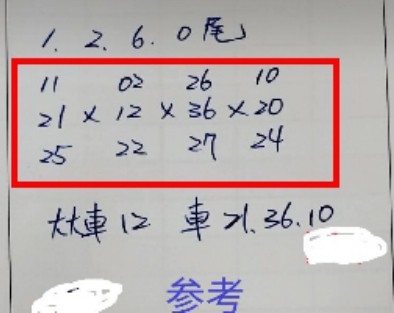 1. 2. 6. 0尾
11 02 26 10
21 × 12 × 36 × 20
25 22 27 24
大車12 車21.36.10
参考